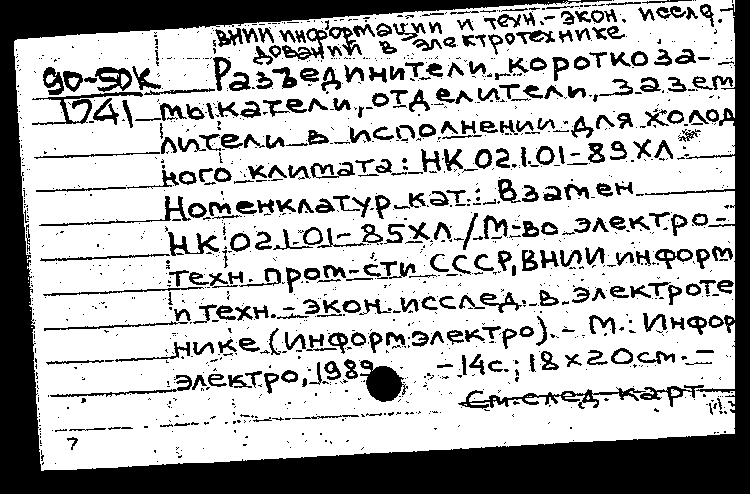 ВНИИ информации и техн.-экон. исслед.-
дований в электротехнике
90-50К
1741
Разъединители, короткоза-
мыкатели, отделители, зазем
лители в исполнении для холод
ного климата: НК 02.1.01-89ХЛ:
Номенклатур. кат.: Взамен
НК 02.1.01-85ХЛ/М-во электро-
техн. пром-сти СССР, ВНИИ информ
и техн.-экон. исслед. в электроте
нике (Информэлектро).- М.: Инфор
электро, 1989 -14с.; 18х20см.-
См. след. карт.
7